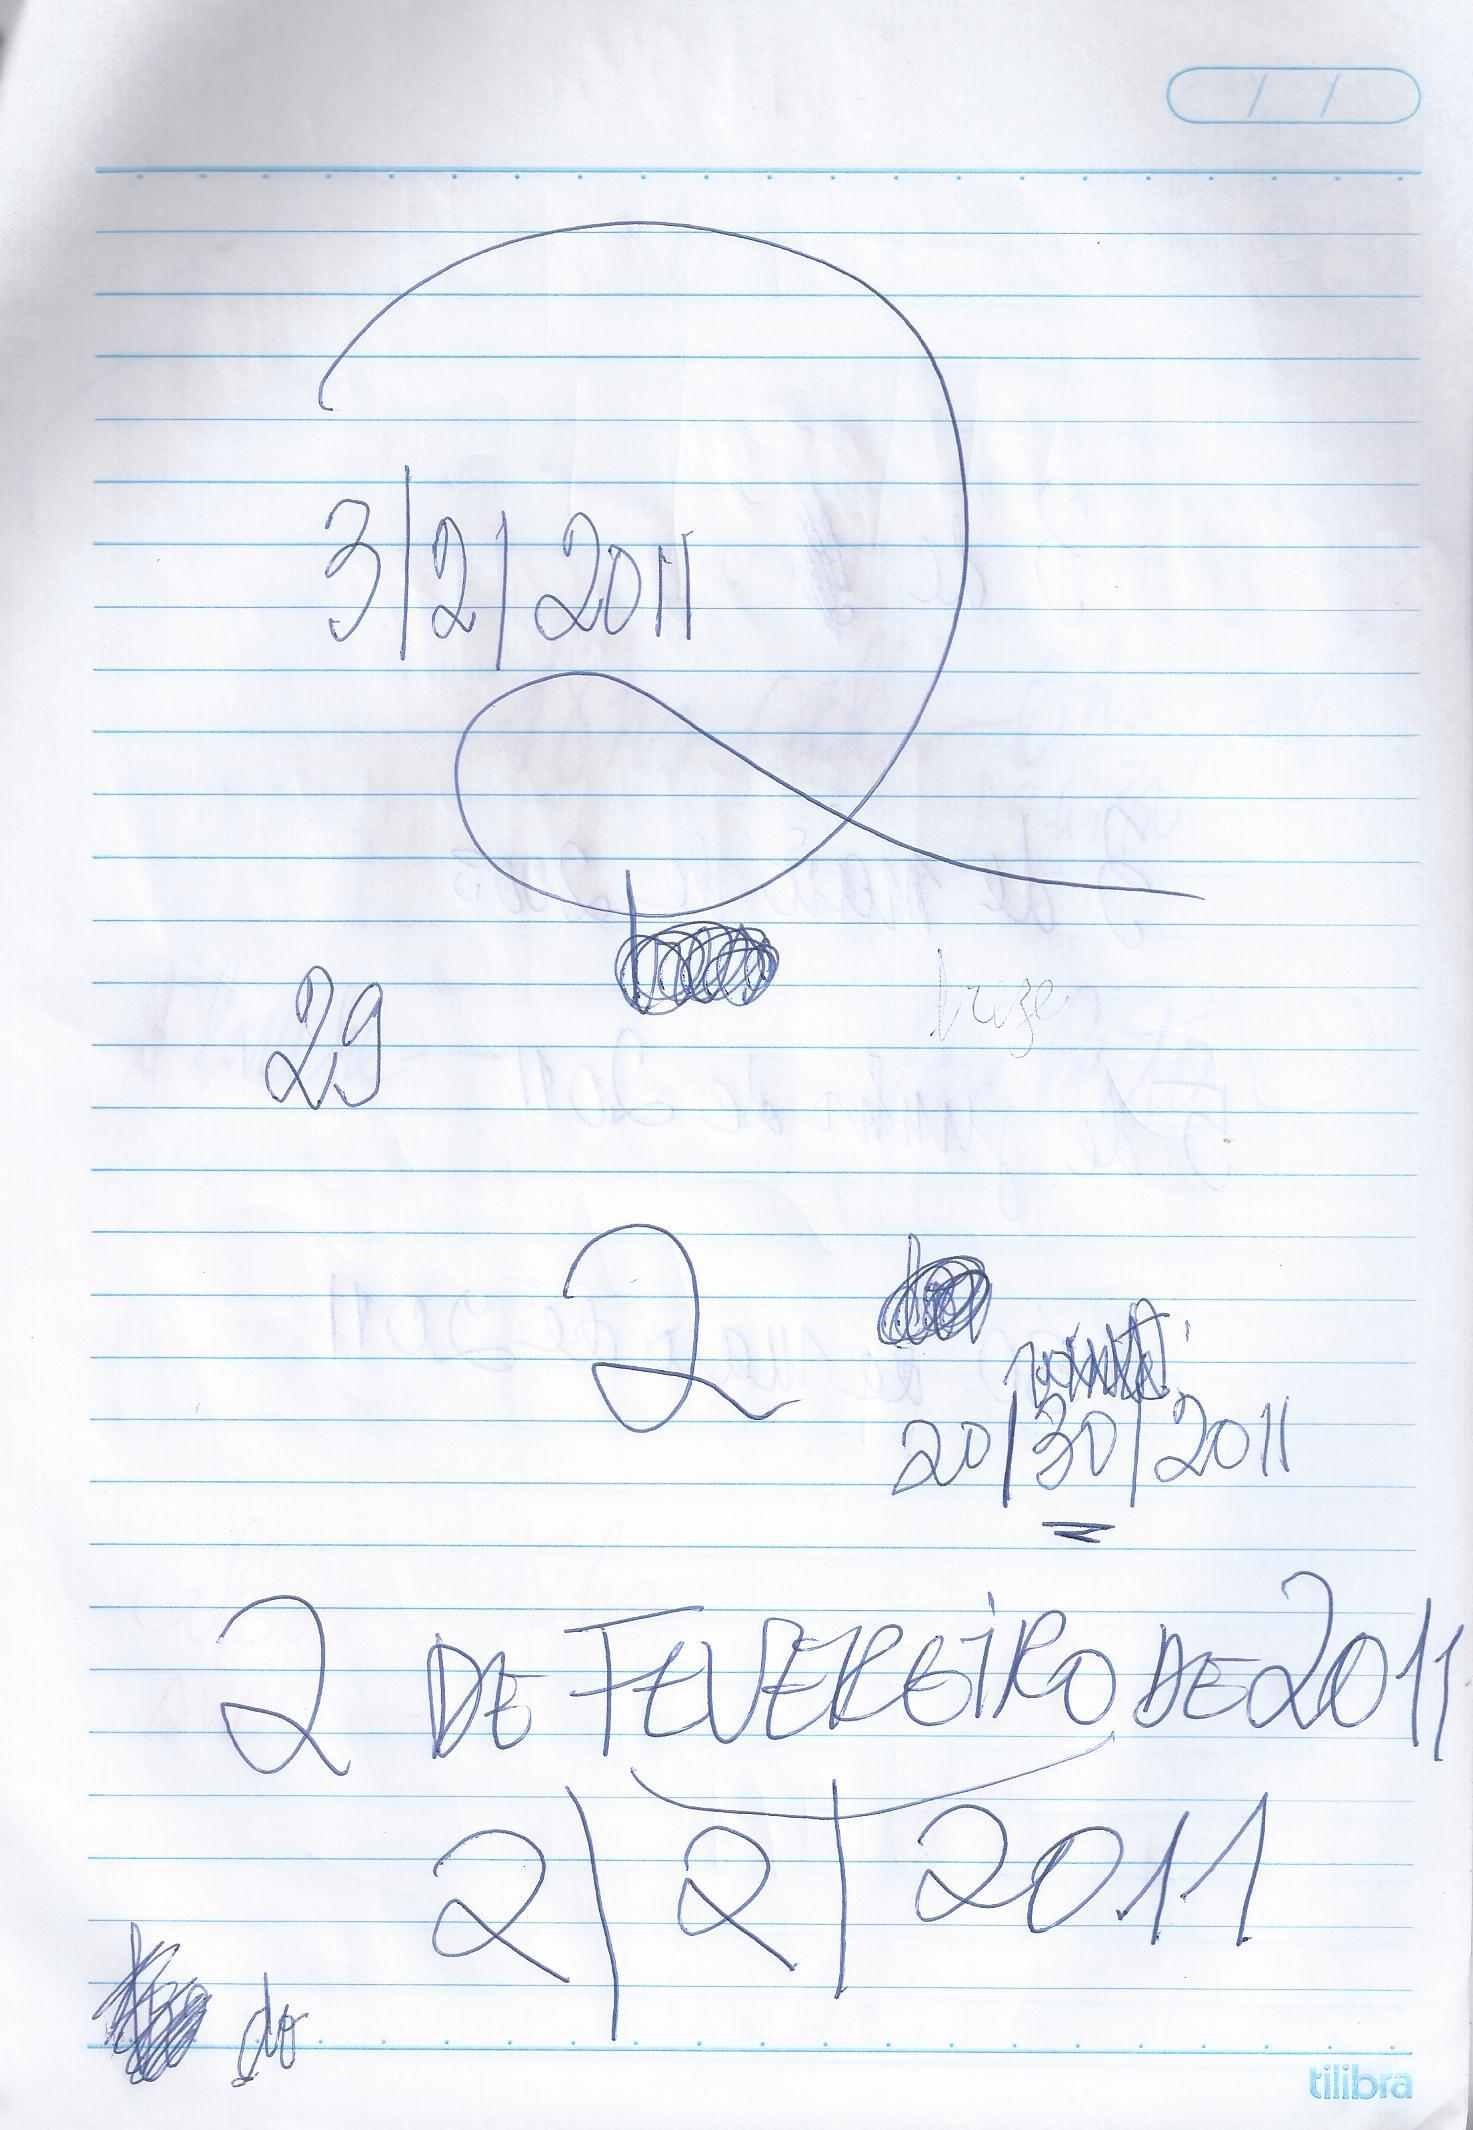 / /
2
3/2/2011
29
2
20/30/2011
2 DE FEVEREIRO DE 2011
2/2/2011
do
tilibra